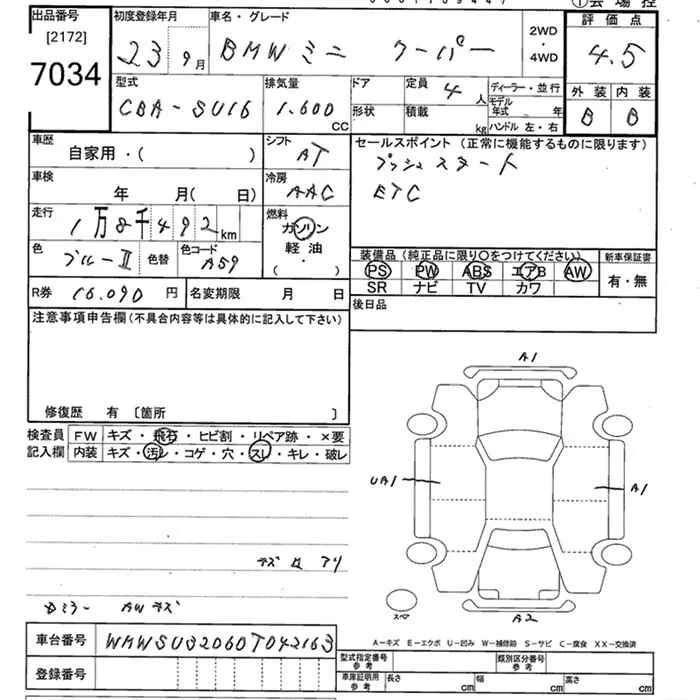 ①会場控
出品番号 初度登録年月 車名・グレード 評価点
[2172]
7034
23 9月 BMWミニ クーパー 2WD ・ 4WD 4.5
型式 排気量 ドア 定員 4人 ディーラー・並行 外装 内装
CBA-SU16 1.600 CC 形状 積載 kg モデル年式 年 B B
ハンドル 左・右
車歴 シフト セールスポイント (正常に機能するものに限ります)
自家用・( ) AT プッシュスタート
車検 冷房 ETC
年 月( 日) AAC
走行 燃料
1万8千492km ガソリン
色 色替 色コード 軽油・ 装備品 (純正品に限り○をつけてください) 新車保証書
ブルーII A59 ( ) PS PW ABS エアB AW 有・無
SR ナビ TV カワ
R券 16.090円 名変期限 月 日 後日品
注意事項申告欄(不具合内容等は具体的に記入して下さい)
修復歴 有 〔箇所 〕
検査員記入欄 FW キズ・飛石・ヒビ割・リペア跡・×要
内装 キズ・汚レ・コゲ・穴・スレ・キレ・破レ
A1
UA1
A1
A2
スペア
アリ
AW
A-キズ E-エクボ U-凹み W-補修跡 S-サビ C-腐食 XX-交換済
車台番号 WMWSU32060T042163
登録番号
型式指定番号 類別区分番号
参考 参考
車庫証明用 長さ cm 幅 cm 高さ cm
参考